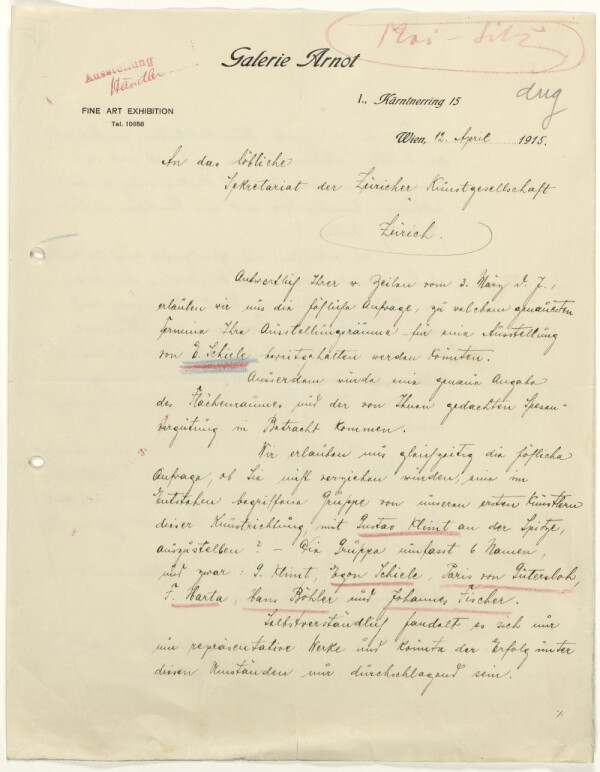 Mai-Sitz
Ausstellung
Händler
Galerie Arnot
I., Kärntnerring 15
FINE ART EXHIBITION
Tel. 10658
Wien, 12. April 1915.
An das löbliche
Sekretariat der Züricher Kunstgesellschaft
Zürich.
Antwortlich Ihrer w. Zeilen vom 3. März d. J.,
erlauben wir uns die höfliche Anfrage, zu welchem genaueren
Termine Ihre Ausstellungsräume für eine Ausstellung
von E. Schiele bereitgehalten werden könnten.
Ausserdem würde eine genaue Angabe
des Flächenraumes und der von Ihnen gedachten Spesen-
vergütung in Betracht kommen.
Wir erlauben uns gleichzeitig die höfliche
Anfrage, ob Sie nicht vorziehen würden, eine im
Entstehen begriffene Gruppe von unseren ersten Künstlern
dieser Kunstrichtung, mit Gustav Klimt an der Spitze,
auszustellen? – Die Gruppe umfasst 6 Namen,
und zwar: G. Klimt, Egon Schiele, Paris von Gütersloh,
F. Harta, Hans Böhler und Johannes Fischer.
Selbstverständlich handelt es sich nur
um repräsentative Werke und könnte der Erfolg unter
diesen Umständen nur durchschlagend sein.